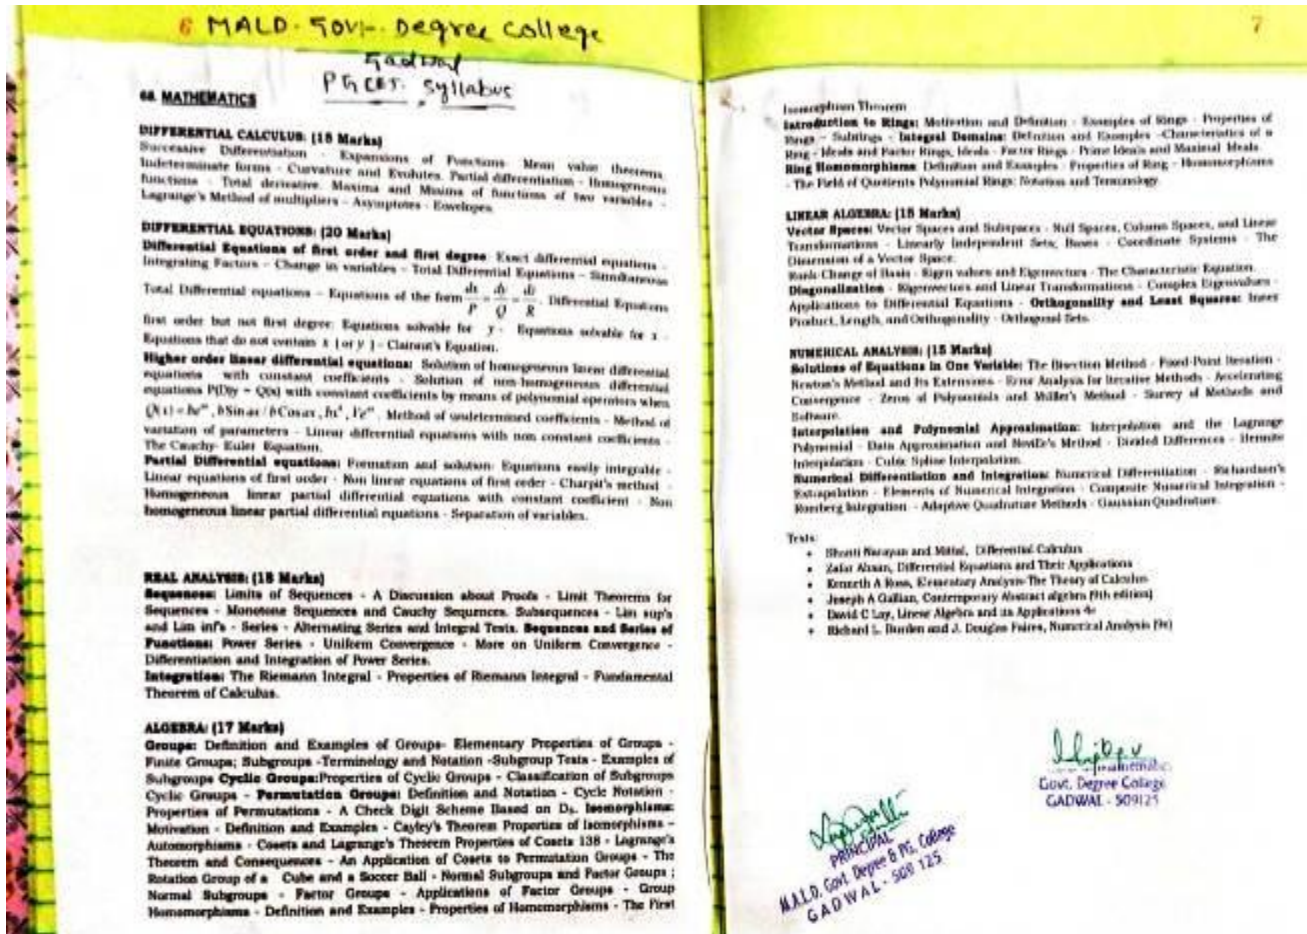 6 MALD. Govt. Degree College
Gadwal
PGCET. Syllabus
68. MATHEMATICS
DIFFERENTIAL CALCULUS: (15 Marks)
Successive Differentiation - Expansions of Functions- Mean value theorems.
Indeterminate forms - Curvature and Evolutes. Partial differentiation - Homogeneous
functions - Total derivative. Maxima and Minima of functions of two variables -
Lagrange's Method of multipliers - Asymptotes - Envelopes.
DIFFERENTIAL EQUATIONS: (20 Marks)
Differential Equations of first order and first degree: Exact differential equations -
Integrating Factors - Change in variables - Total Differential Equations - Simultaneous
Total Differential equations - Equations of the form dx/P = dy/Q = dz/R. Differential Equations
first order but not first degree: Equations solvable for y - Equations solvable for x -
Equations that do not contain x (or y) - Clairaut's Equation.
Higher order linear differential equations: Solution of homogeneous linear differential
equations with constant coefficients - Solution of non-homogeneous differential
equations P(D)y = Q(x) with constant coefficients by means of polynomial operators when
Q(x) = be^ax, bSin ax / bCos ax, bx^k, Ve^ax. Method of undetermined coefficients - Method of
variation of parameters - Linear differential equations with non constant coefficients -
The Cauchy- Euler Equation.
Partial Differential equations: Formation and solution- Equations easily integrable -
Linear equations of first order - Non linear equations of first order - Charpit's method -
Homogeneous linear partial differential equations with constant coefficient - Non
homogeneous linear partial differential equations - Separation of variables.
REAL ANALYSIS: (18 Marks)
Sequences: Limits of Sequences - A Discussion about Proofs - Limit Theorems for
Sequences - Monotone Sequences and Cauchy Sequences. Subsequences - Lim sup's
and Lim inf's - Series - Alternating Series and Integral Tests. Sequences and Series of
Functions: Power Series - Uniform Convergence - More on Uniform Convergence -
Differentiation and Integration of Power Series.
Integration: The Riemann Integral - Properties of Riemann Integral - Fundamental
Theorem of Calculus.
ALGEBRA: (17 Marks)
Groups: Definition and Examples of Groups- Elementary Properties of Groups -
Finite Groups; Subgroups -Terminology and Notation -Subgroup Tests - Examples of
Subgroups Cyclic Groups:Properties of Cyclic Groups - Classification of Subgroups
Cyclic Groups - Permutation Groups: Definition and Notation - Cycle Notation -
Properties of Permutations - A Check Digit Scheme Based on D5. Isomorphisms:
Motivation - Definition and Examples - Cayley's Theorem Properties of Isomorphisms -
Automorphisms - Cosets and Lagrange's Theorem Properties of Cosets 138 - Lagrange's
Theorem and Consequences - An Application of Cosets to Permutation Groups - The
Rotation Group of a Cube and a Soccer Ball - Normal Subgroups and Factor Groups ;
Normal Subgroups - Factor Groups - Applications of Factor Groups - Group
Homomorphisms - Definition and Examples - Properties of Homomorphisms - The First
7
Isomorphism Theorem
Introduction to Rings: Motivation and Definition - Examples of Rings - Properties of
Rings - Subrings - Integral Domains: Definition and Examples -Characteristics of a
Ring - Ideals and Factor Rings, Ideals - Factor Rings - Prime Ideals and Maximal Ideals.
Ring Homomorphisms: Definition and Examples - Properties of Ring - Homomorphisms
- The Field of Quotients Polynomial Rings: Notation and Terminology.
LINEAR ALGEBRA: (15 Marks)
Vector Spaces: Vector Spaces and Subspaces - Null Spaces, Column Spaces, and Linear
Transformations - Linearly Independent Sets, Bases - Coordinate Systems - The
Dimension of a Vector Space.
Rank-Change of Basis - Eigen values and Eigenvectors - The Characteristic Equation.
Diagonalization - Eigenvectors and Linear Transformations - Complex Eigenvalues -
Applications to Differential Equations - Orthogonality and Least Squares: Inner
Product, Length, and Orthogonality - Orthogonal Sets.
NUMERICAL ANALYSIS: (15 Marks)
Solutions of Equations in One Variable: The Bisection Method - Fixed-Point Iteration -
Newton's Method and Its Extensions - Error Analysis for Iterative Methods - Accelerating
Convergence - Zeros of Polynomials and Müller's Method - Survey of Methods and
Software.
Interpolation and Polynomial Approximation: Interpolation and the Lagrange
Polynomial - Data Approximation and Neville's Method - Divided Differences - Hermite
Interpolation - Cubic Spline Interpolation.
Numerical Differentiation and Integration: Numerical Differentiation - Richardson's
Extrapolation - Elements of Numerical Integration - Composite Numerical Integration -
Romberg Integration - Adaptive Quadrature Methods - Gaussian Quadrature.
Texts:
• Shanti Narayan and Mittal, Differential Calculus
• Zafar Ahsan, Differential Equations and Their Applications
• Kenneth A Ross, Elementary Analysis-The Theory of Calculus
• Joseph A Gallian, Contemporary Abstract algebra (9th edition)
• David C Lay, Linear Algebra and its Applications 4e
• Richard L. Burden and J. Douglas Faires, Numerical Analysis (9e)
Govt. Degree College
GADWAL - 509125
PRINCIPAL
M.A.L.D. Govt. Degree & P.G. College
GADWAL - 509 125